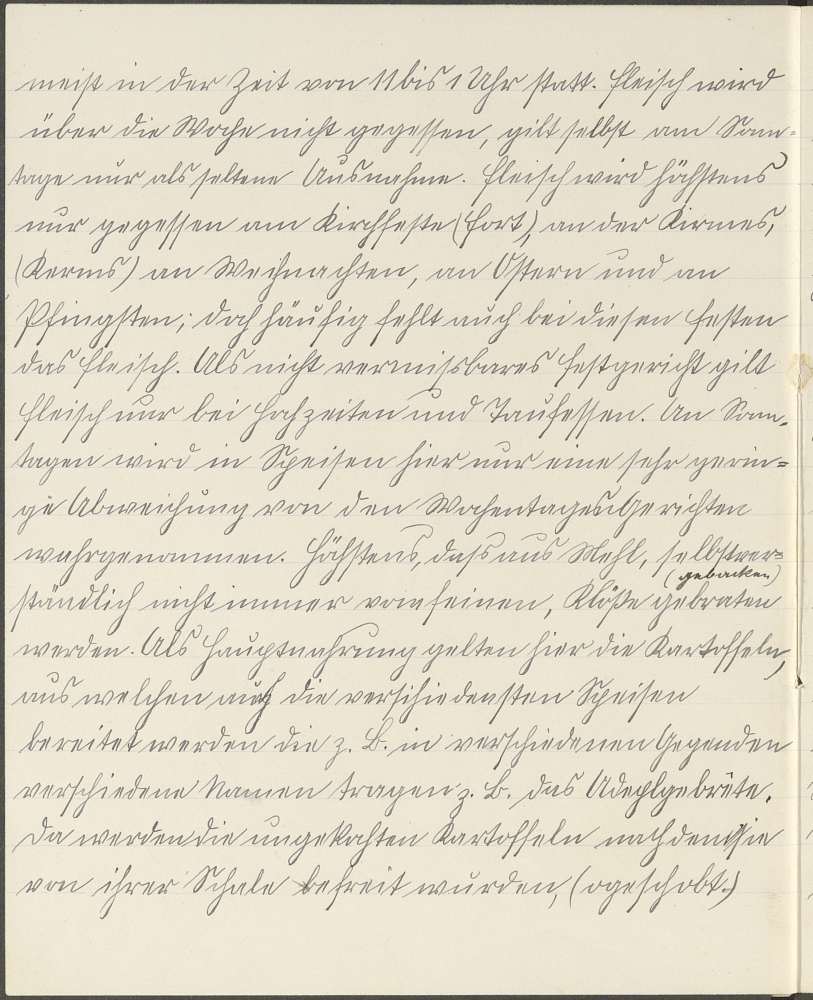 meist in der Zeit von 11 bis 1 Uhr statt. Fleisch wird
über die Woche nicht gegessen, gilt selbst am Sonn-
tage nur als seltene Ausnahme. Fleisch wird höchstens
nur gegessen am Kirchfeste (Fort), an der Kirmes,
(Kerms) an Weihnachten, an Ostern und an
Pfingsten; doch häufig fehlt auch bei diesen Festen
das Fleisch. Als nicht vermissbares Festgericht gilt
Fleisch nur bei Hochzeiten und Taufessen. An Sonn-
tagen wird in Speisen hier nur eine sehr gerin-
ge Abweichung von den Wochentages Gerichten
wahrgenommen. Höchstens, dass aus Mehl, selbstver-
(gebacken)
ständlich nicht immer vom feinen, Klöße gebraten
werden. Als Hauptnahrung gelten hier die Kartoffeln,
aus welchen auch die verschiedensten Speisen
bereitet werden die z. B. in verschiedenen Gegenden
verschiedene Namen tragen z. B. das
Da werden die ungekochten Kartoffeln nachdem sie
von ihrer Schale befreit wurden, (ogeschobt.)